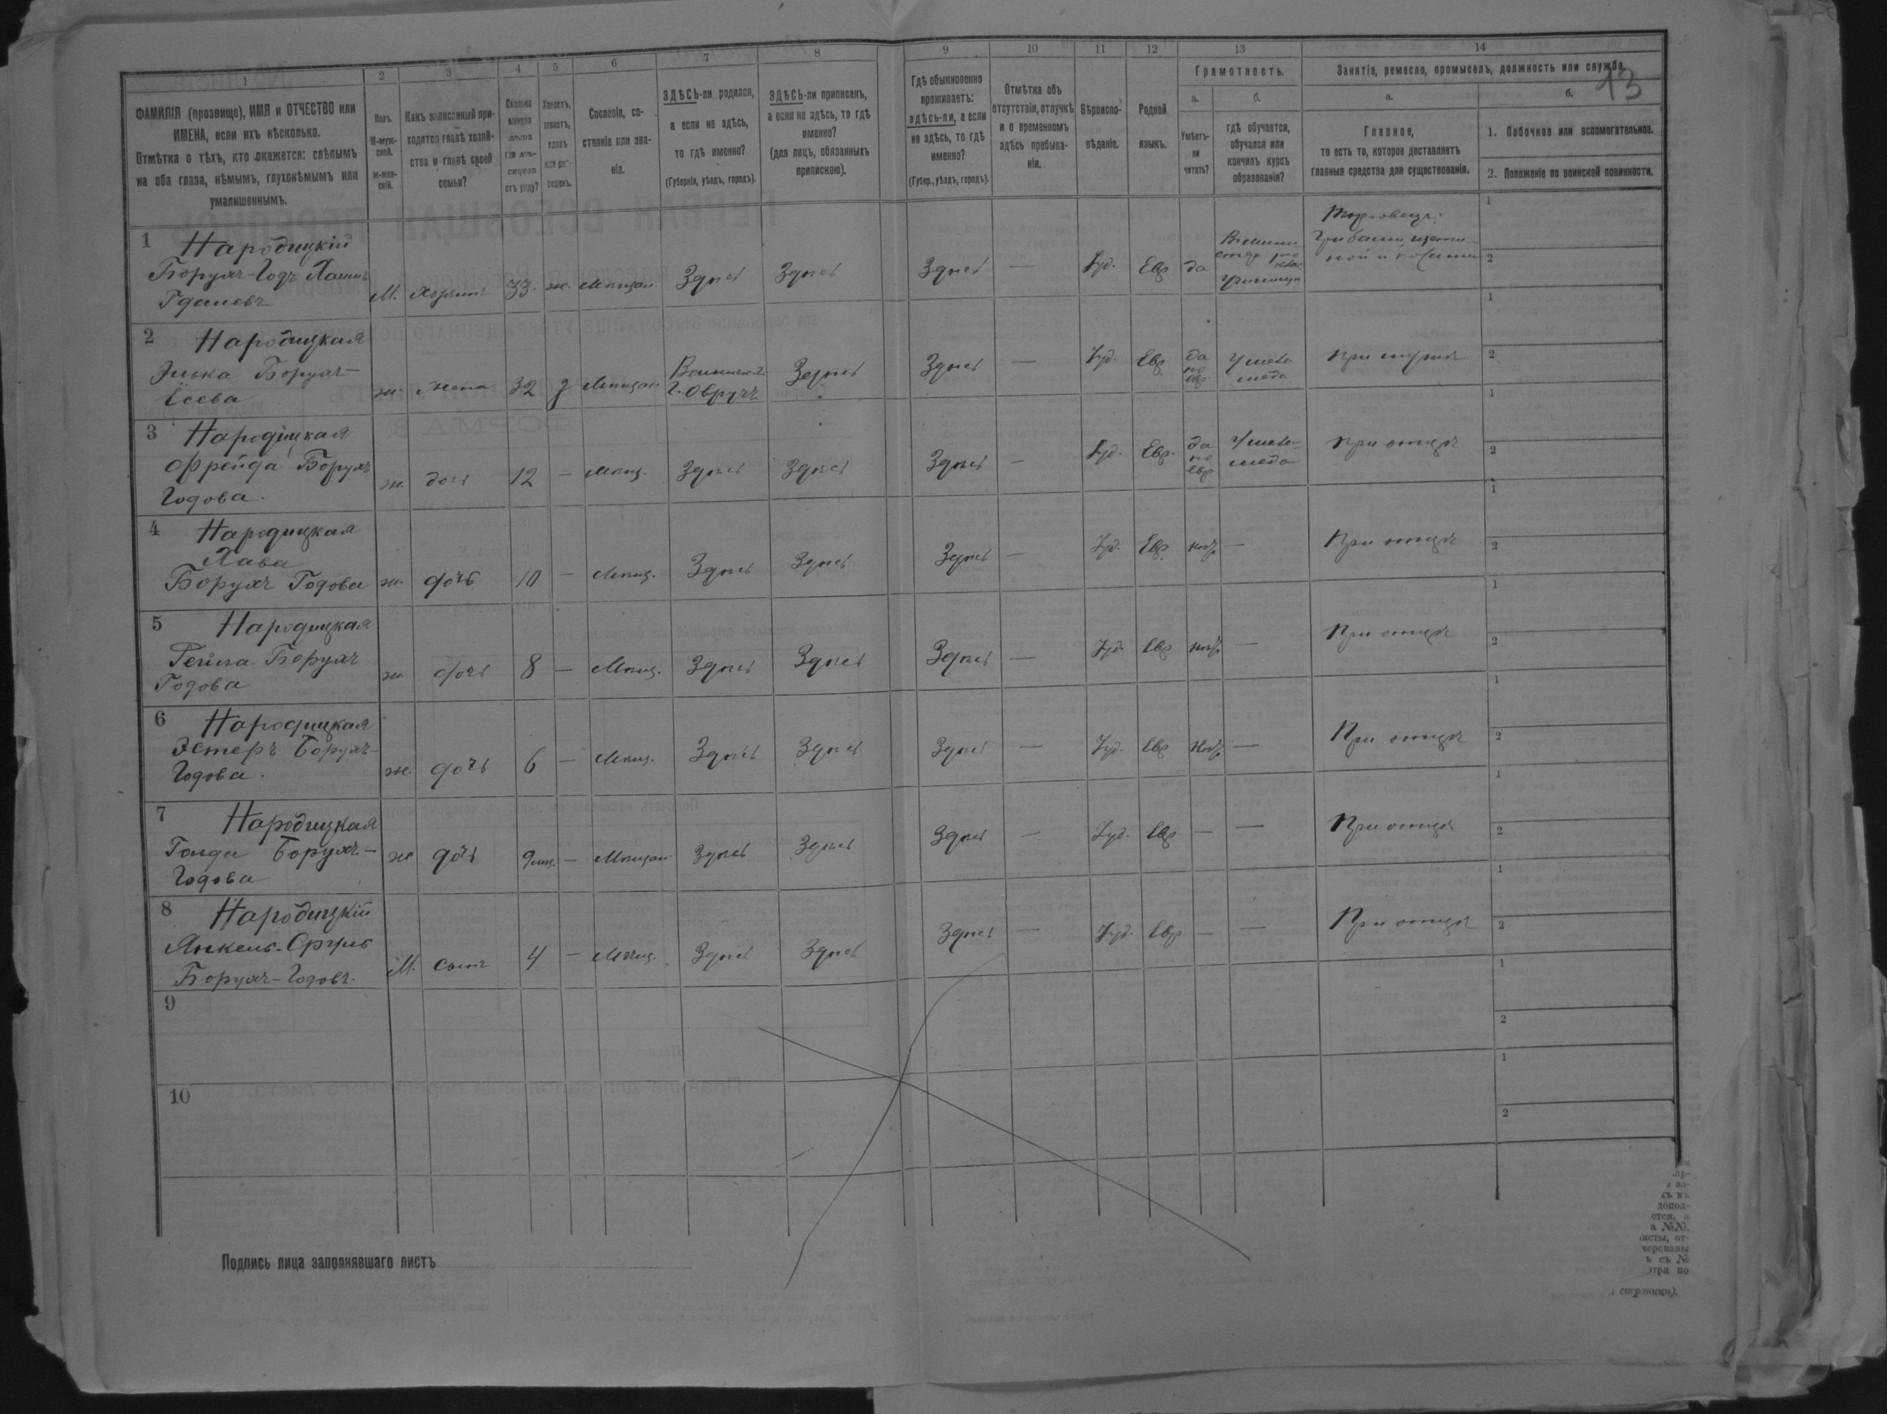 1
2
3
4
5
6
7
8
9
10
11
12
13
14
13
ФАМИЛІЯ (прозвище), ИМЯ и ОТЧЕСТВО или
ИМЕНА, если ихъ нѣсколько.
Отмѣтка о тѣхъ, кто окажется: слѣпымъ
на оба глаза, нѣмымъ, глухонѣмымъ или
умалишеннымъ.
Полъ.
М-муж-
ской.
ж-жен-
скій.
Какъ записанный при-
ходится главѣ хозяй-
ства и главѣ своей
семьи?
Сколько
минуло
лѣтъ
или мѣ-
сяцевъ
отъ роду?
Холостъ,
женатъ,
вдовъ
или раз-
веденъ.
Сословіе, со-
стояніе или зва-
ніе.
ЗДѢСЬ-ли родился,
а если не здѣсь,
то гдѣ именно?
(Губернія, уѣздъ, городъ).
ЗДѢСЬ-ли приписанъ,
а если не здѣсь, то гдѣ
именно?
(для лицъ, обязанныхъ
припискою).
Гдѣ обыкновенно
проживаетъ:
здѣсь-ли, а если
не здѣсь, то гдѣ
именно?
(Губер., уѣздъ, городъ).
Отмѣтка объ
отсутствіи, отлучкѣ
и о временномъ
здѣсь пребыва-
ніи.
Вѣроиспо-
вѣданіе.
Родной
языкъ.
Грамотность.
а.
б.
Умѣетъ-
ли
читать?
гдѣ обучается,
обучался или
кончилъ курсъ
образованія?
Занятія, ремесло, промыселъ, должность или служба.
а.
б.
Главное,
то есть то, которое доставляетъ
главныя средства для существованія.
1. Побочное или вспомогательное.
2. Положеніе по воинской повинности.
1 Народицкій
Борухъ-Годъ Хаимъ
Гдалевъ
М. Хозяинъ 33 ж. Мѣщан. Здѣсь Здѣсь Здѣсь — Іуд. Евр. да
училище
Торговецъ
1
2
2 Народицкая
Элька Борухъ-
ж. жена 32 з Мѣщан. Волынская Г. Овручъ Здѣсь Здѣсь — Іуд. Евр да по евр. У меламеда при мужѣ
1
2
3 Народицкая
Фрейда Борухъ
Годова.
ж. дочь 12 — Мѣщ. Здѣсь Здѣсь Здѣсь — Іуд. Евр. да по евр У меламеда при отцѣ
1
2
4 Народицкая
Хава
Борухъ Годова
ж. дочь 10 — Мѣщ. Здѣсь Здѣсь Здѣсь — Іуд. Евр. — При отцѣ
1
2
5 Народицкая
Борухъ
Годова
ж дочь 8 — Мѣщ. Здѣсь Здѣсь Здѣсь — Іуд. Евр — При отцѣ
1
2
6 Народицкая
Эстеръ Борухъ-
Годова.
ж. дочь 6 — Мѣщ. Здѣсь Здѣсь Здѣсь — Іуд. Евр — При отцѣ
1
2
7 Народицкая
Борухъ-
Годова
ж дочь — Мѣщан. Здѣсь Здѣсь Здѣсь — Іуд. Евр — — При отцѣ
1
2
8 Народицкій
Янкель-Сруль
Борухъ-Годовъ.
М. сынъ 4 — Мѣщ. Здѣсь Здѣсь Здѣсь — Іуд. Евр — — При отцѣ
1
2
9
1
2
10
1
2
Подпись лица заполнявшаго листъ